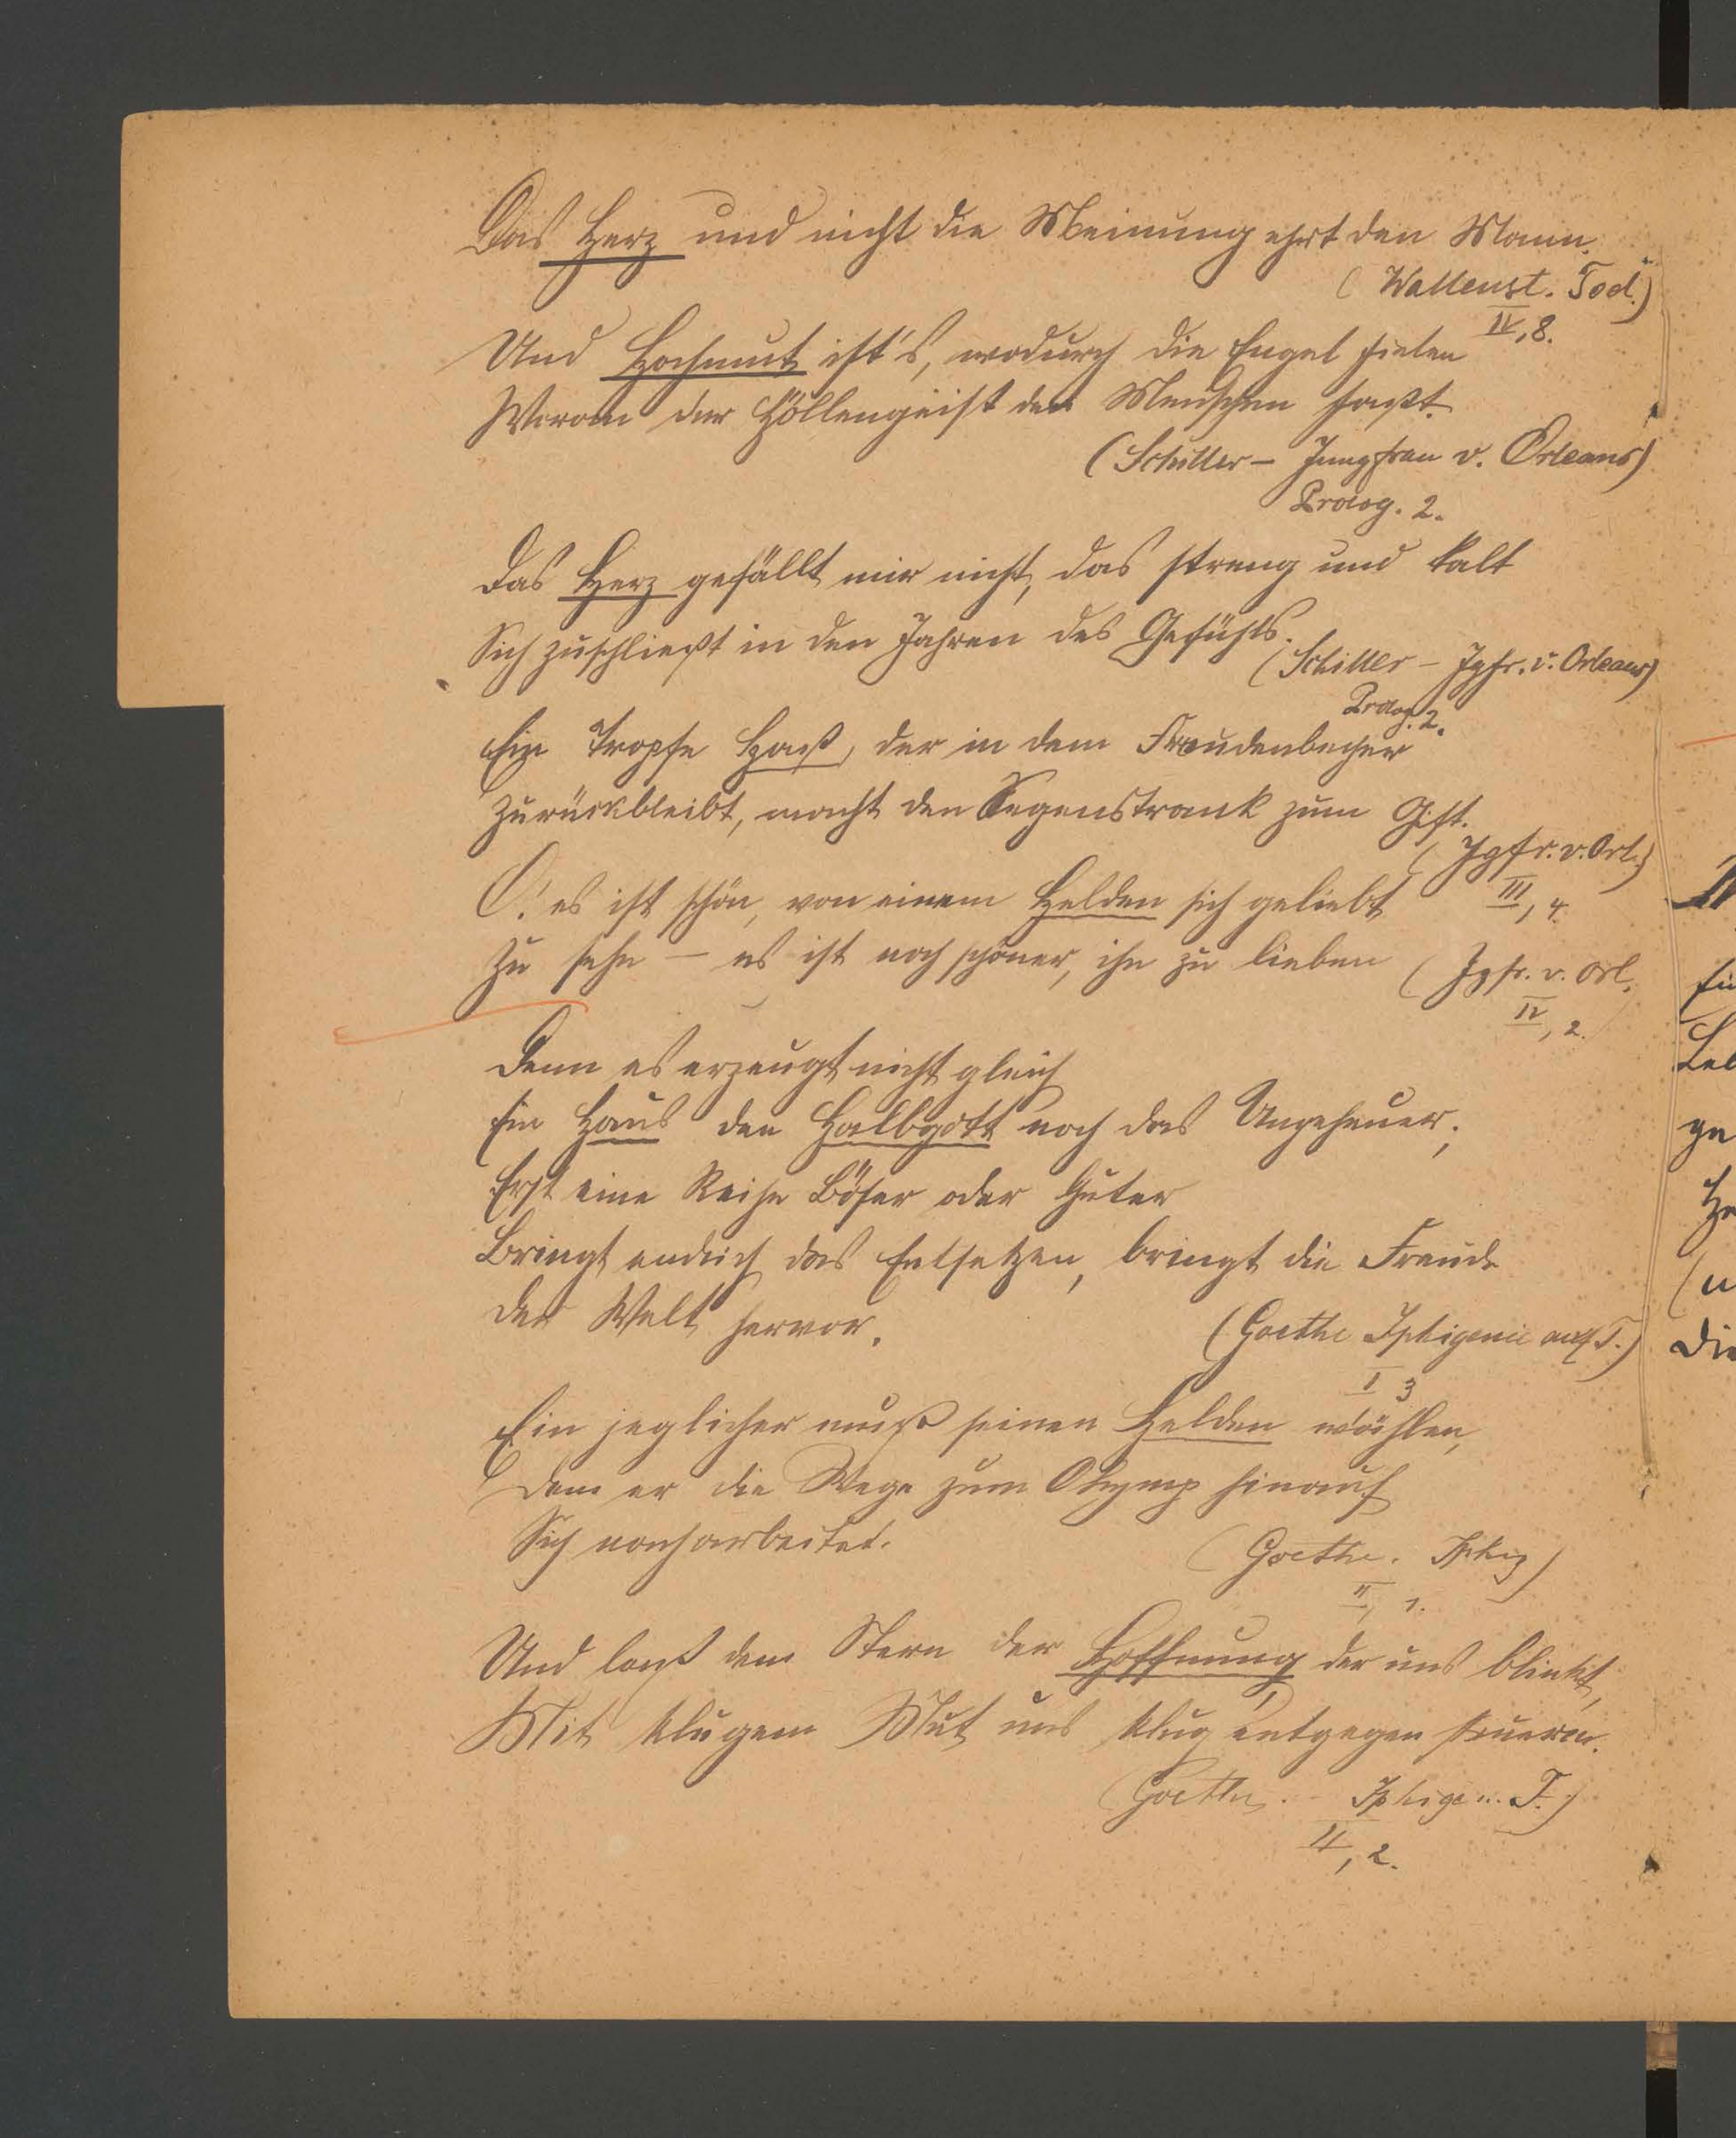 Das Herz und nicht die Meinung ehrt den Mann.
(Wallenst. Tod.)
IV, 8.
Und Hochmut ist's, wodurch die Engel fielen
Woran der Höllengeist den Menschen faßt.
(Schiller – Jungfrau v. Orleans)
Prolog. 2.
Das Herz gefällt mir nicht, das streng und kalt
Sich zuschließt in den Jahren des Gefühls.
(Schiller – Jgfr. v. Orleans)
Prolog. 2.
Ein Tropfe Haß, der in dem Freudenbecher
Zurückbleibt, macht den Segenstrank zum Gift.
(Jgfr. v. Orl.)
III, 4.
O! es ist schön, von einem Helden sich geliebt
Zu sehn – es ist noch schöner, ihn zu lieben
(Jgfr. v. Orl.
IV, 2.
Denn es erzeugt nicht gleich
Ein Haus den Halbgott noch das Ungeheuer;
Erst eine Reihe Böser oder Guter
Bringt endlich das Entsetzen, bringt die Freude
Der Welt hervor.
(Goethe Iphigenie auf T.)
I 3
Ein jeglicher muß seinen Helden wählen,
Dem er die Wege zum Olymp hinauf
Sich nacharbeitet.
(Goethe. Iphig)
II, 1.
Und laßt dem Stern der Hoffnung, der uns blinkt,
Mit klugem Mut uns klug entgegen steuern.
(Goethe. Iphige... T.)
II, 2.